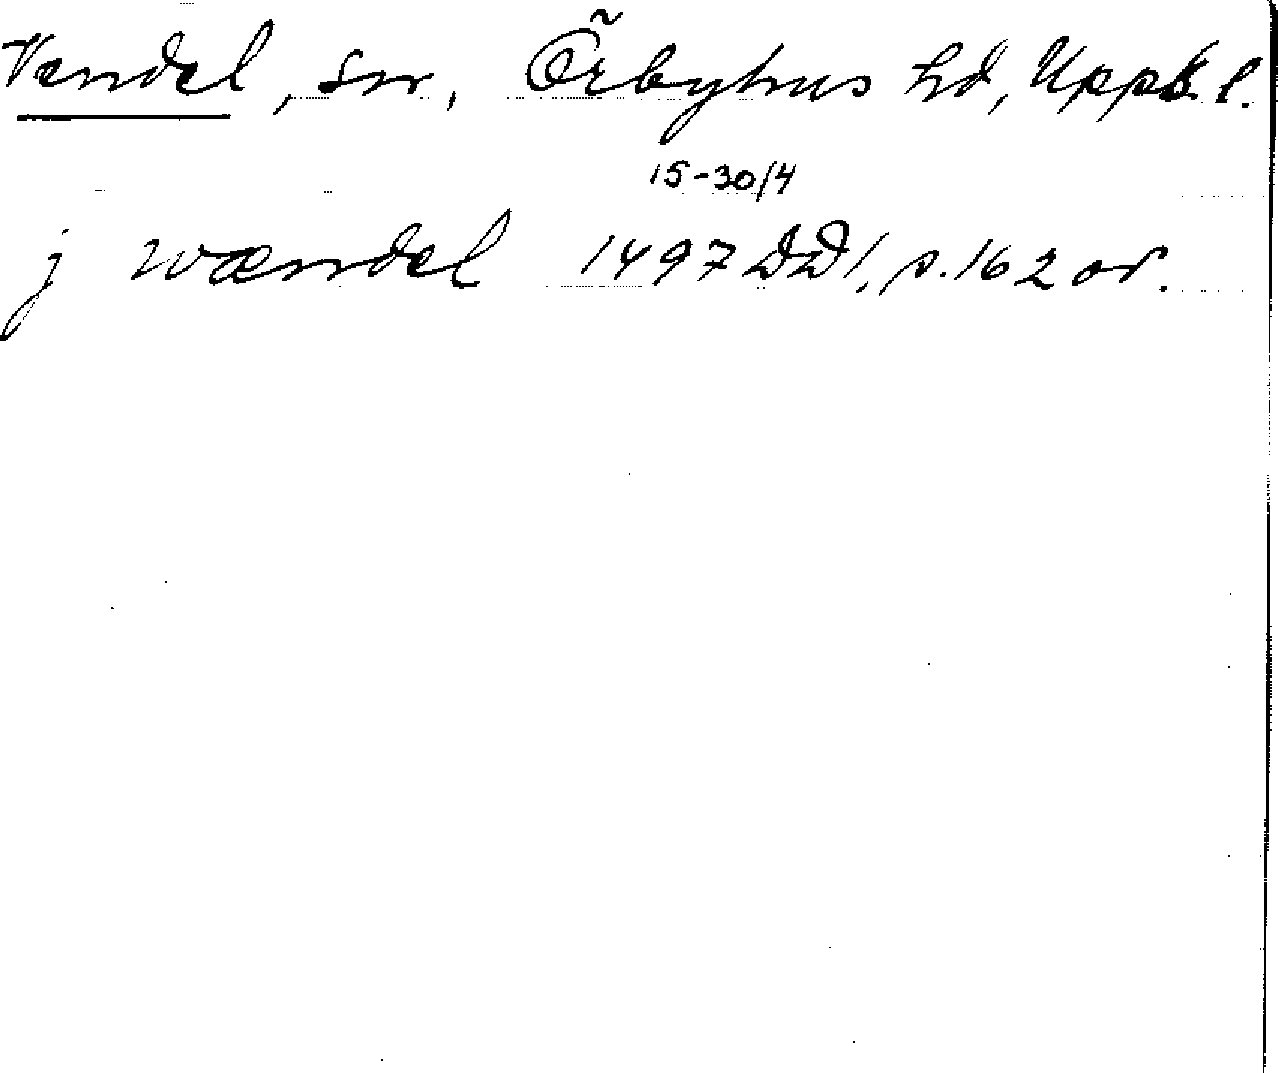 Vendel, sn, Örbyhus hd, Upps. l.
15-30/4
j wændel 1497 DD 1, s. 162 or.